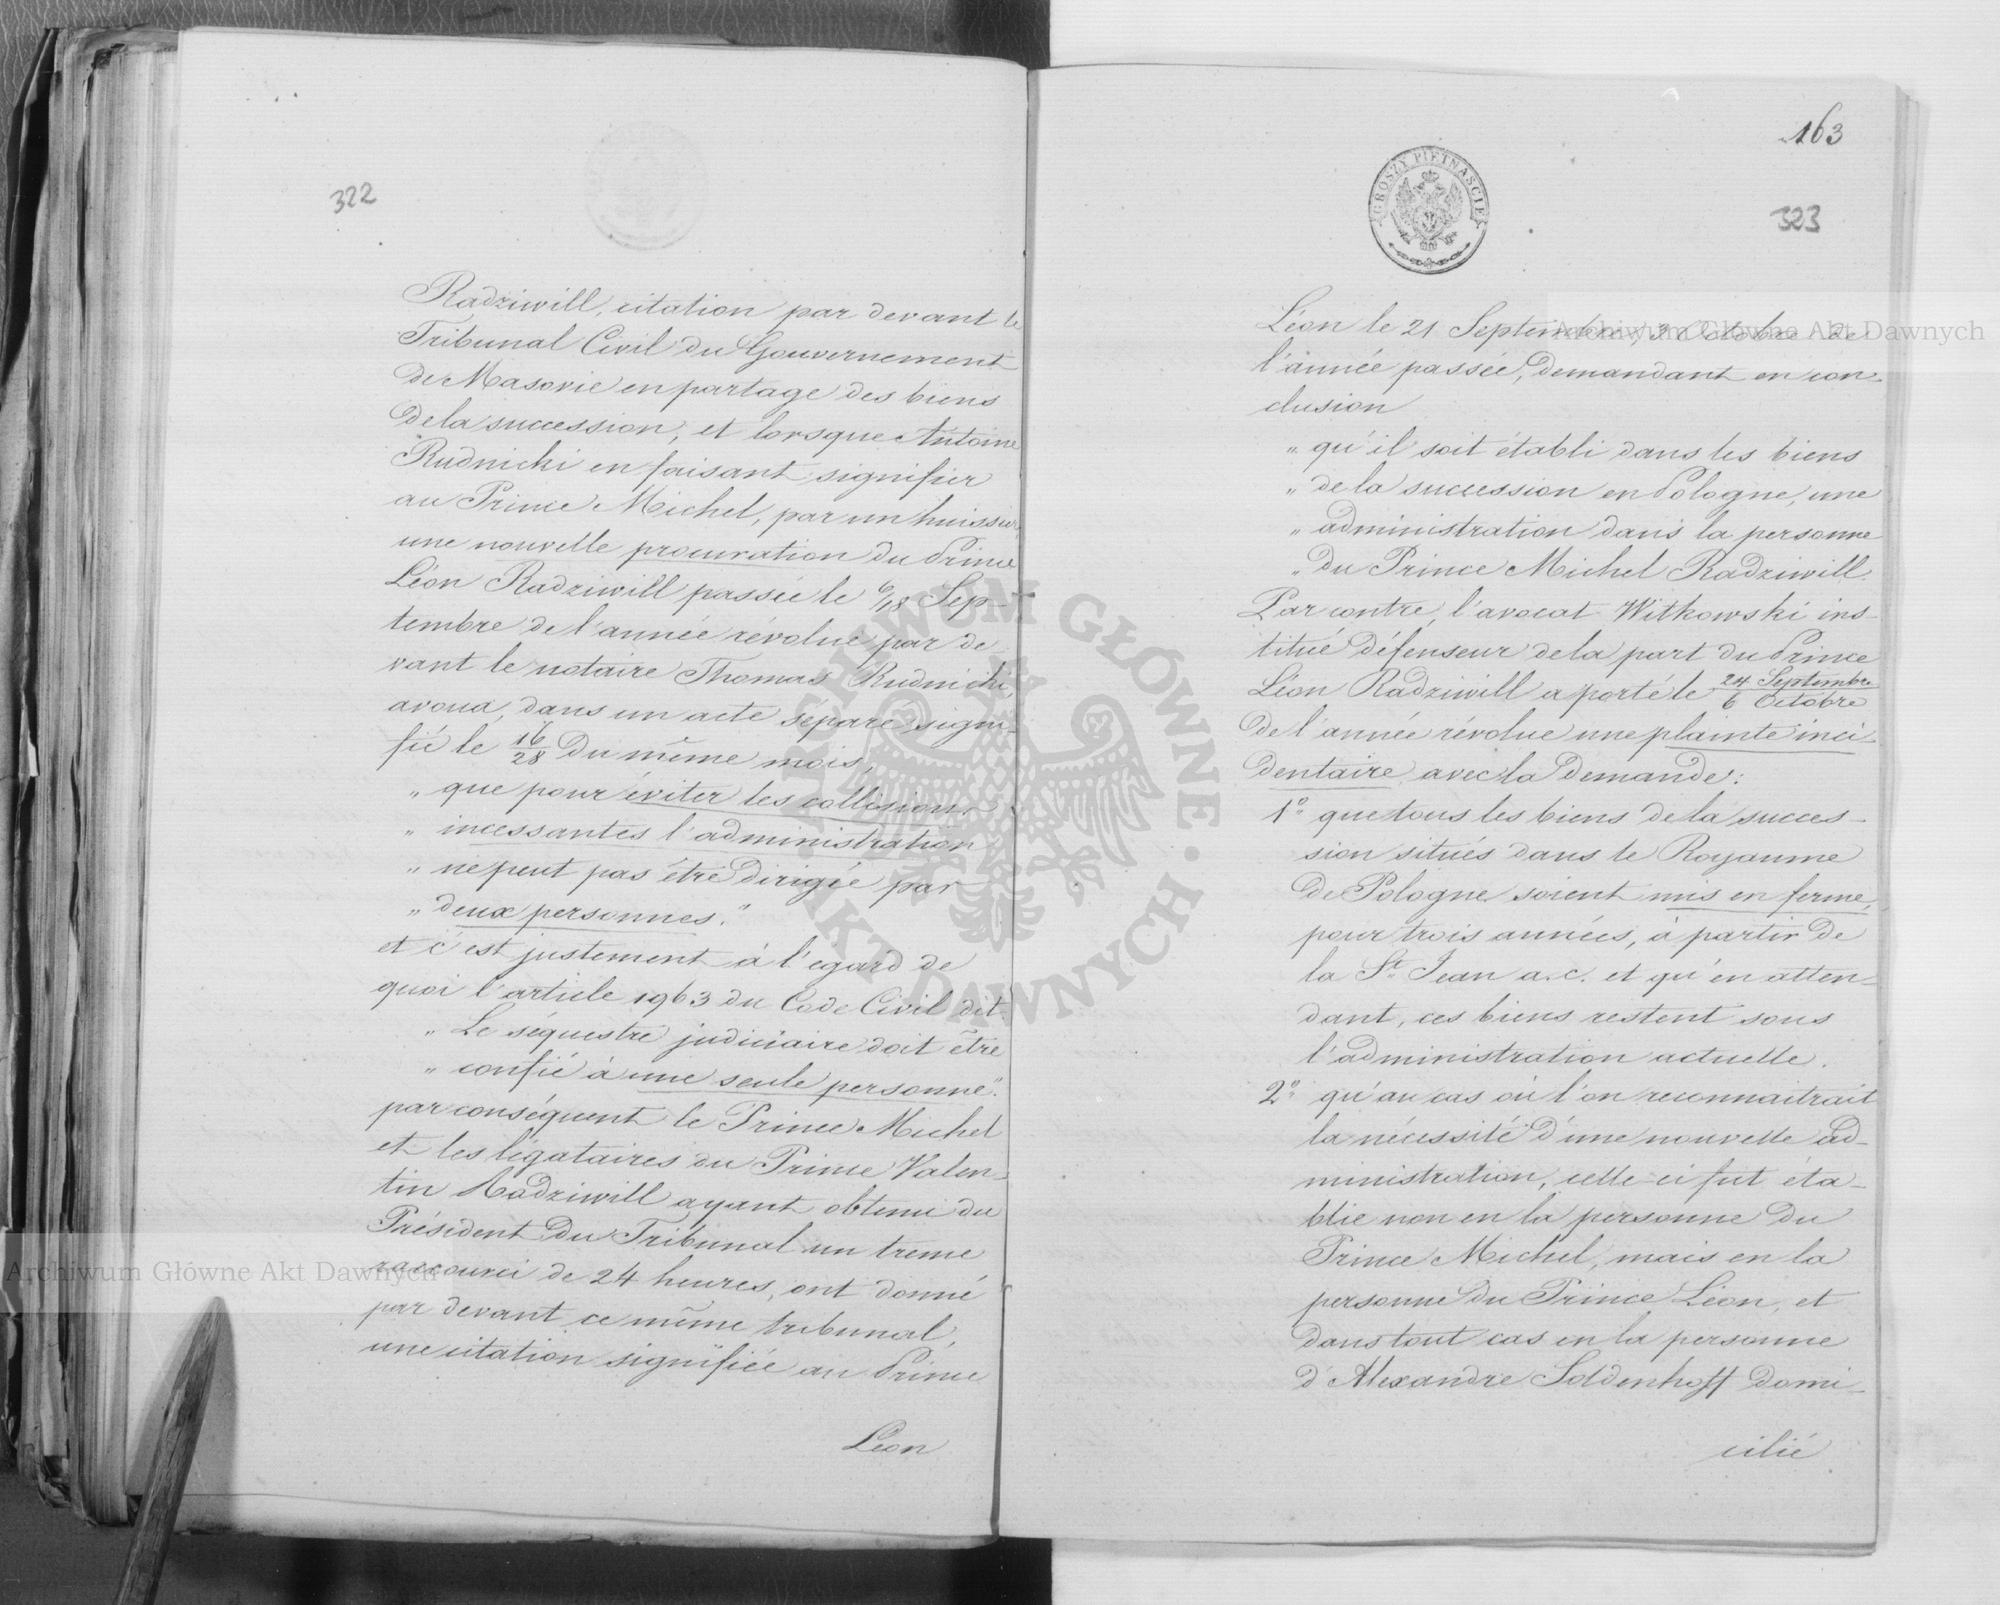 322
Radziwill, citation par devant le
Tribunal Civil du Gouvernement
de Masovie en partage des biens
de la succession, et lorsque Antoine
Rudnicki en faisant signifier
au Prince Michel, par un huissier
une nouvelle procuration du Prince
Léon Radziwill passée le 6/18 Sep-
tembre de l'année révolue par de
vant le notaire Thomas Rudnicki,
avoua, dans un acte séparé signi-
fié le 16/28 du même mois,
„ que pour éviter les collisions
„ incessantes l'administration
„ ne peut pas être dirigée par
„ deux personnes."
et c'est justement à l'égard de
quoi l'article 1963 du Code Civil dit:
„ Le séquestre judiciaire doit être
„ confié à une seule personne".
par conséquent le Prince Michel
et les légataires du Prince Valen-
tin Radziwill ayant obtenu du
Président du Tribunal un terme
raccourci de 24 heures, ont donné
par devant ce même tribunal,
une citation signifiée au Prince
Léon
163
GROSZY PIĘTNAŚCIE
323
Léon le 21 Septembre, 3 Octobre de
l'année passée, demandant en con-
clusion
„ qu'il soit établi dans les biens
„ de la succession en Pologne, une
„ administration dans la personne
„ du Prince Michel Radziwill.
Par contre, l'avocat Witkowski ins-
titué défenseur de la part du Prince
Léon Radziwill a porté le 24 Septembre/6 Octobre
de l'année révolue une plainte inci-
dentaire avec la demande:
1° que tous les biens de la succes-
sion situés dans le Royaume
de Pologne soient mis en ferme,
pour trois années, à partir de
la St. Jean a.c. et qu'en atten-
dant, ces biens restent sous
l'administration actuelle.
2° qu'au cas où l'on reconnaitrait
la nécessité d'une nouvelle ad-
ministration, celle-ci fut éta-
blie non en la personne du
Prince Michel, mais en la
personne du Prince Léon, et
dans tout cas en la personne
d'Alexandre Soldenhoff domi-
cilié
Archiwum Główne Akt Dawnych
Archiwum Główne Akt Dawnych
ARCHIWUM GŁÓWNE · AKT DAWNYCH ·